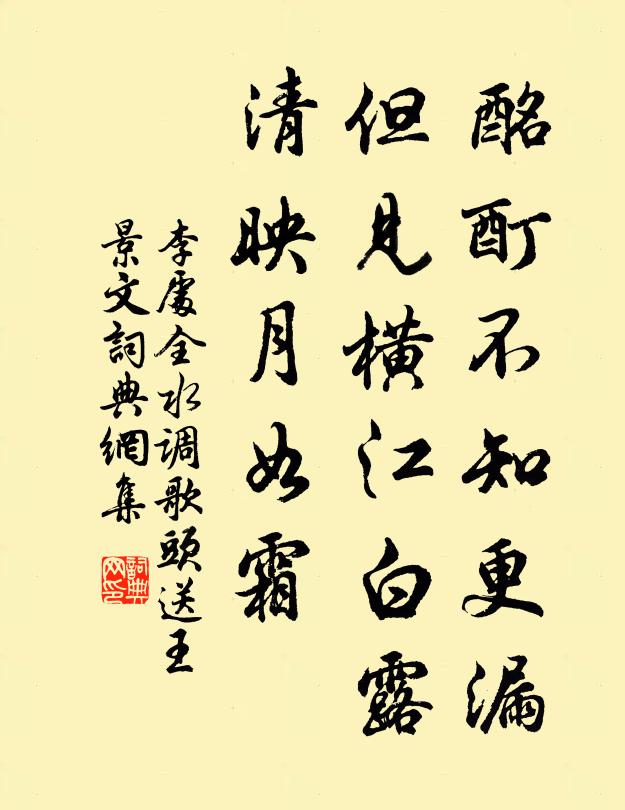 酩酊不知更漏
但見橫江白露
清映月如霜
李處全水调歌頭送王
景文詞典網集
詞典网印